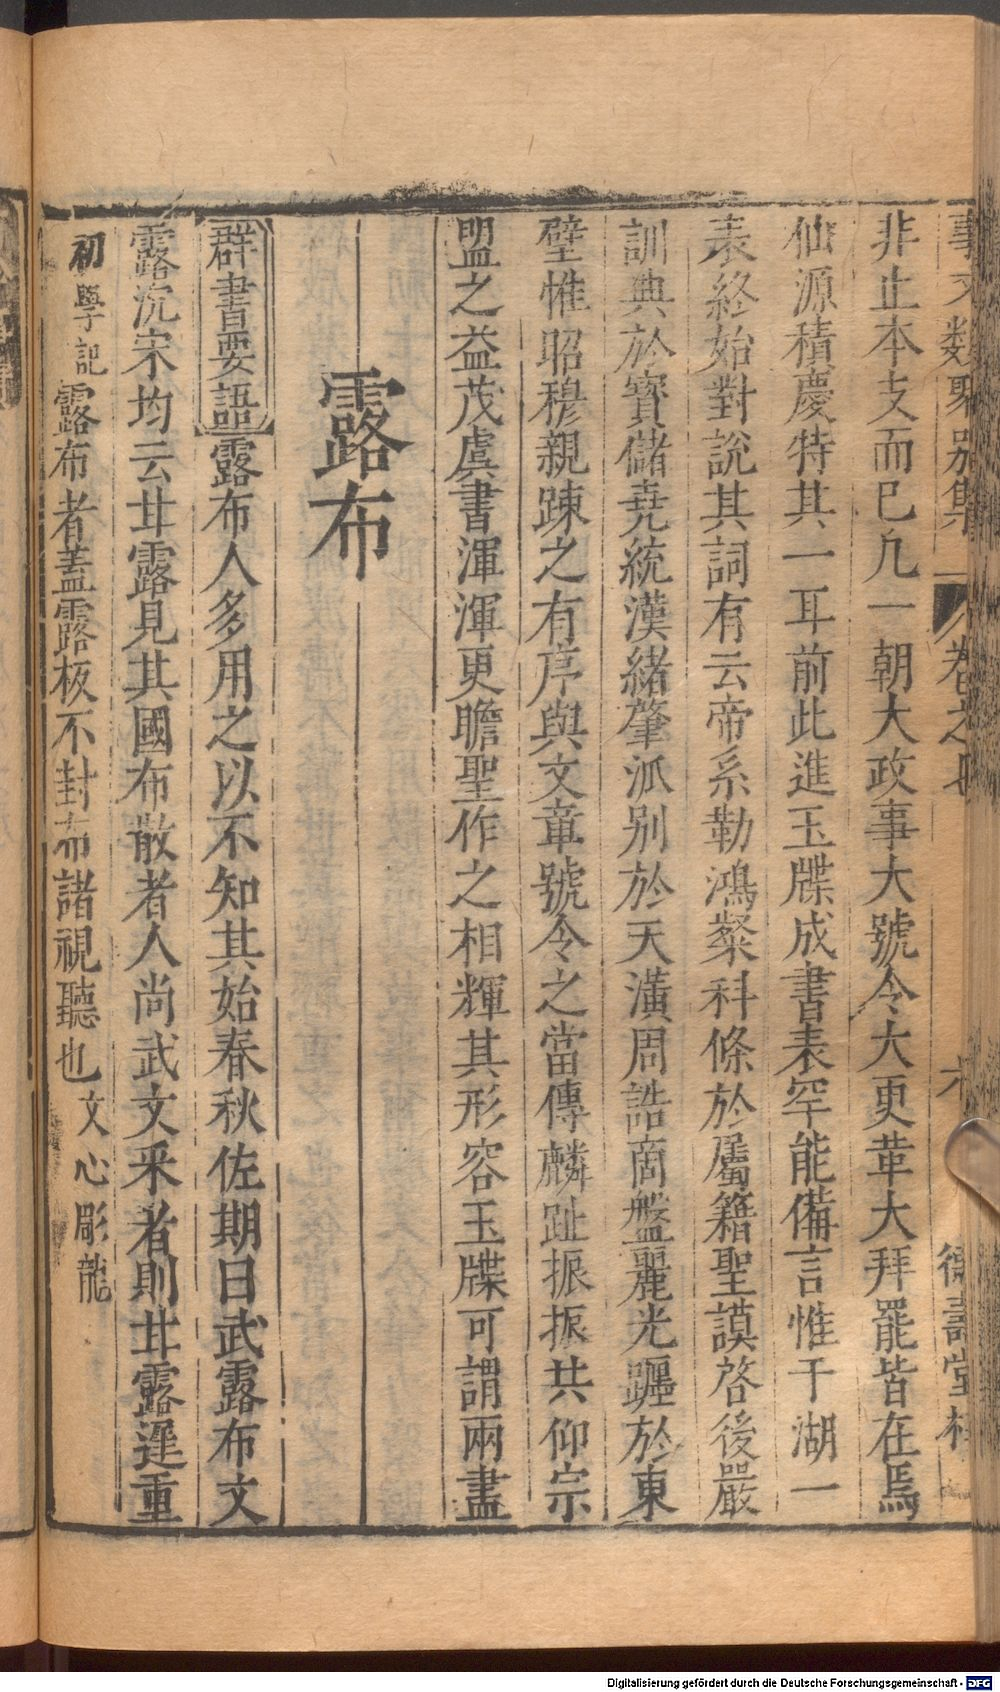 事文類聚別集 卷之四 六 德壽堂梓
非止本支而已凢一朝大政事大號令大更革大拜罷皆在焉
仙源積慶特其一耳前此進玉牒成書表罕能備言惟于湖一
表終始對說其詞有云帝系勒鴻粲科條於屬籍聖謨啓後嚴
訓典於寳儲堯統漢緒肇泒别於天潢周誥商盤麗光躔於東
壁惟昭穆親踈之有序與文章號令之當傳麟趾振振共仰宗
盟之益茂虞書渾渾更瞻聖作之相輝其形容玉牒可謂兩盡
露布
群書要語露布人多用之以不知其始春秋佐期曰武露布文
露沉宋均云甘露見其國布散者人尚武文采者則甘露遲重
初學記露布者盖露板不封布諸視聽也文心彫龍
Digitalisierung gefördert durch die Deutsche Forschungsgemeinschaft - DFG